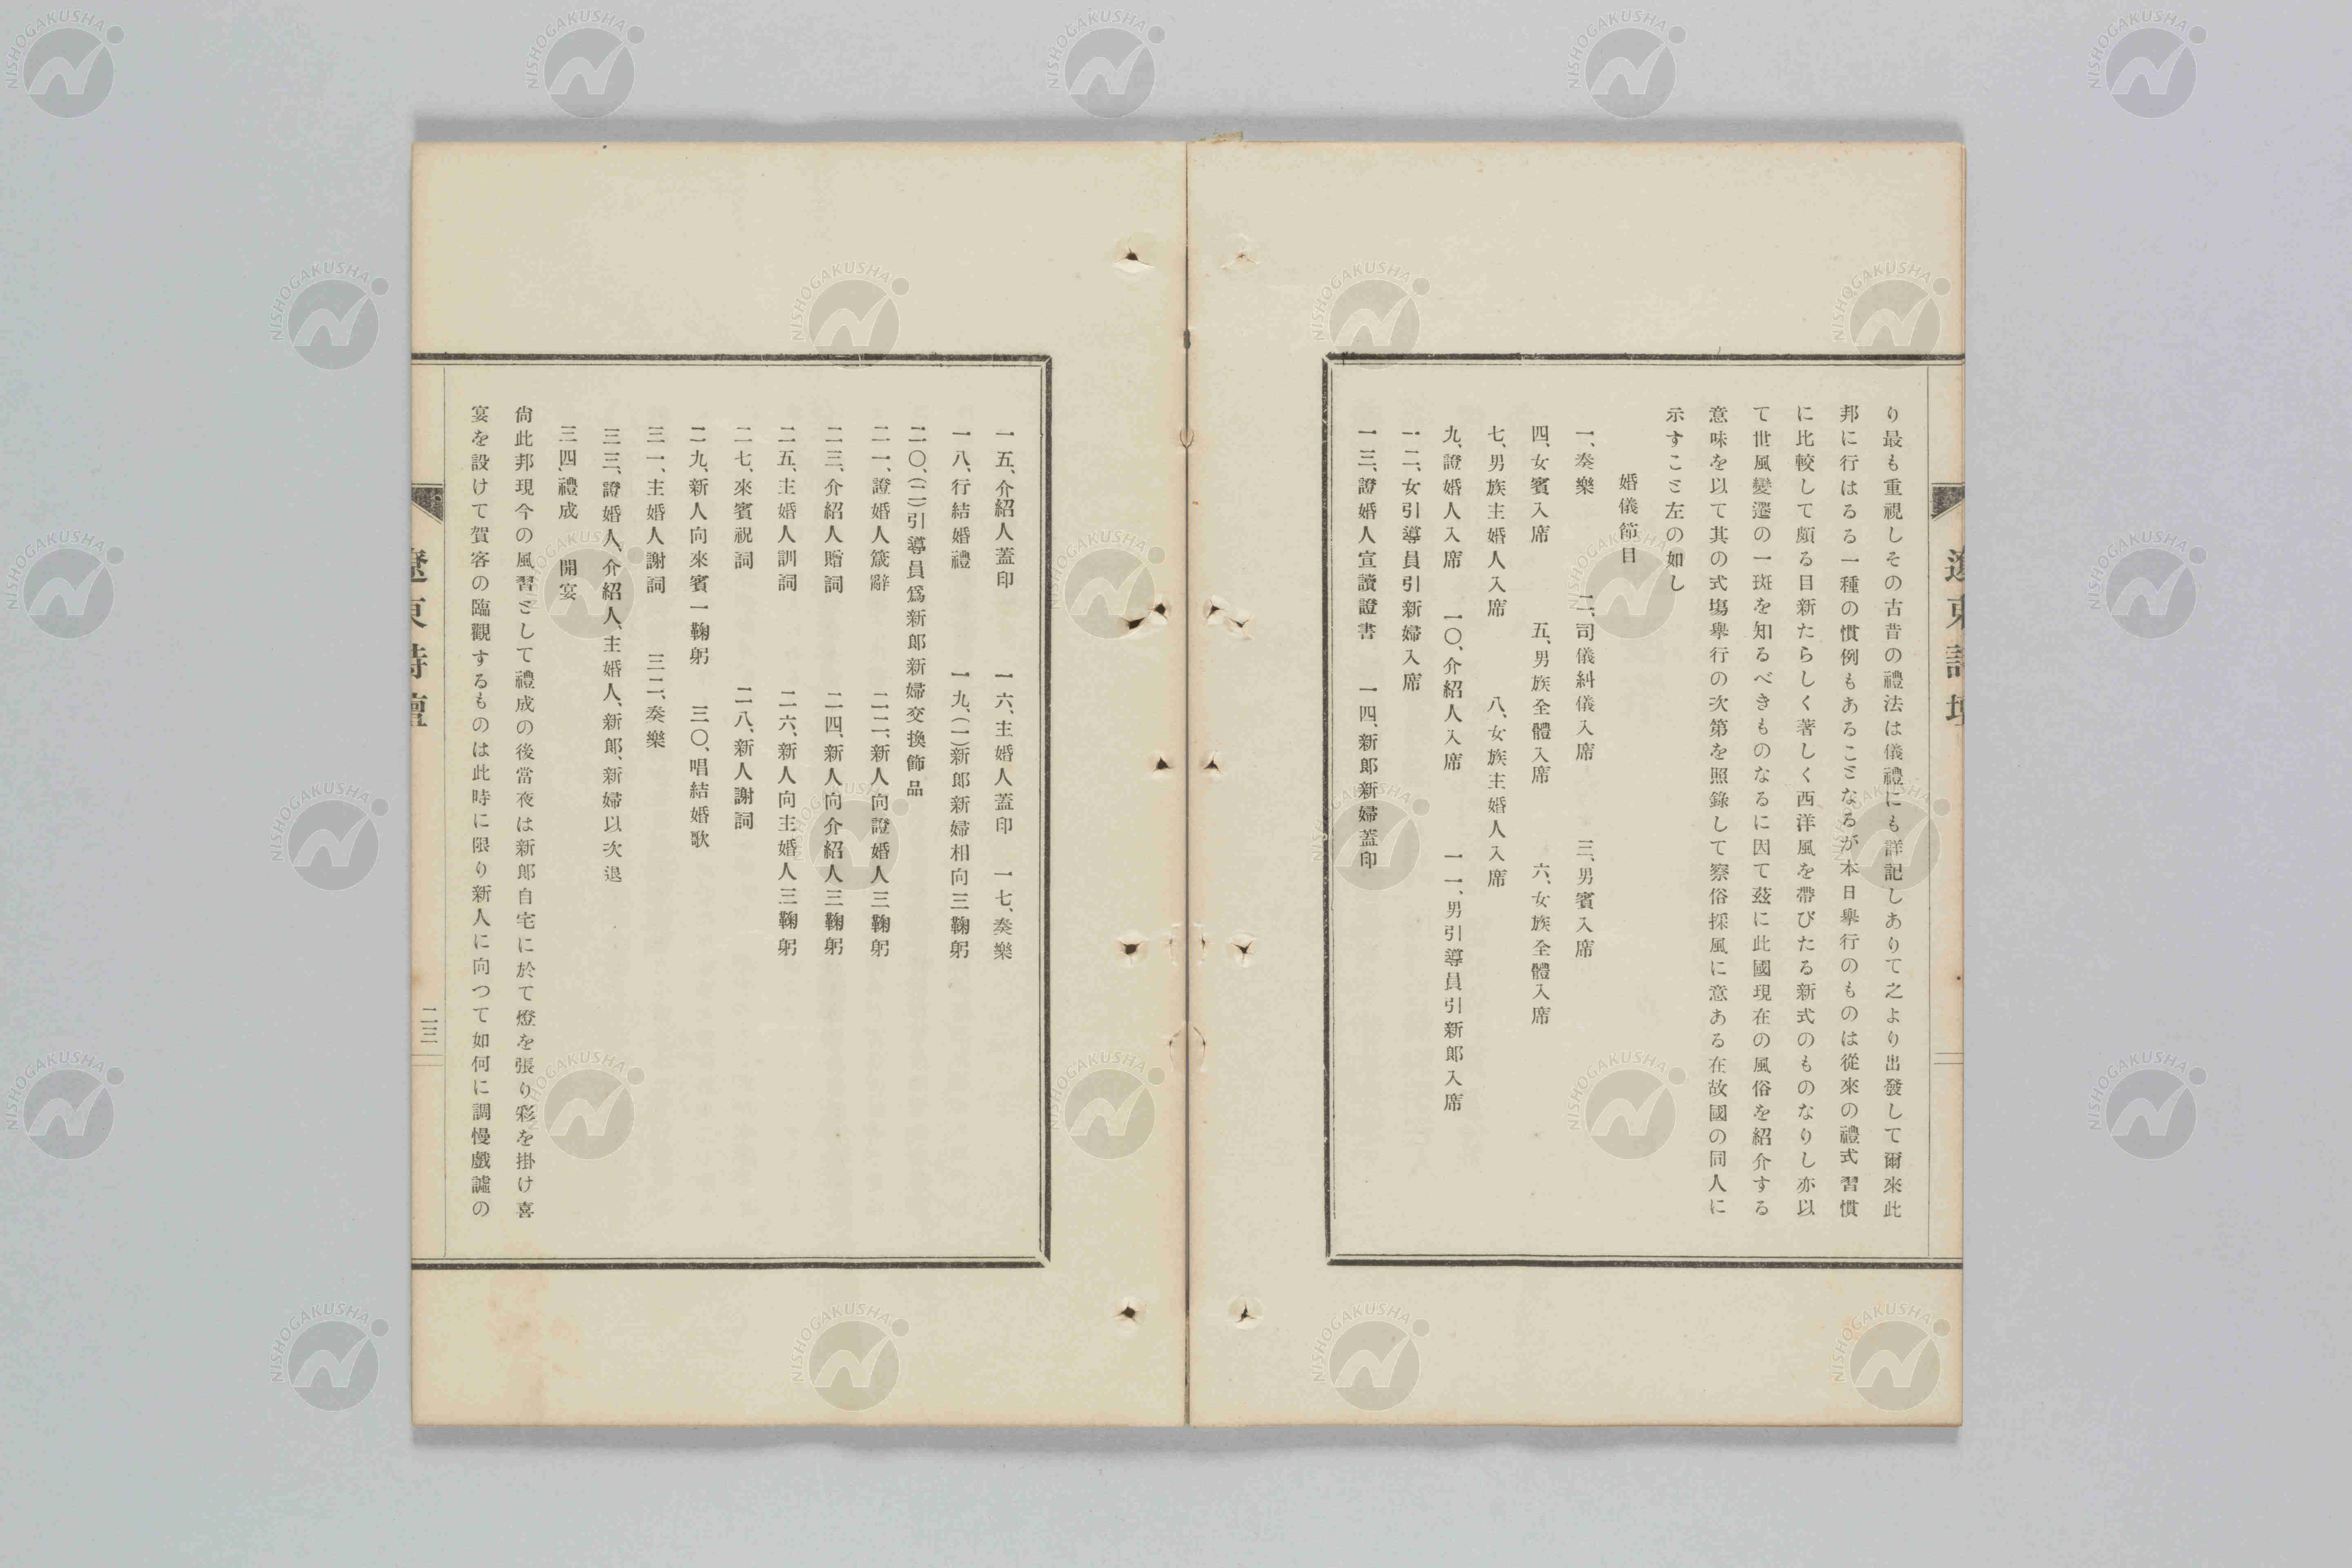 遼東詩壇
り最も重視しその古昔の禮法は儀禮にも詳記しありて之より出發して爾來此
邦に行はるる一種の慣例もあることなるが本日擧行のものは從來の禮式習慣
に比較して頗る目新たらしく著しく西洋風を帶びたる新式のものなりし亦以
て世風變遷の一斑を知るべきものなるに因て玆に此國現在の風俗を紹介する
意味を以て其の式塲擧行の次第を照錄して察俗採風に意ある在故國の同人に
示すこと左の如し
婚儀節目
一、奏樂 二、司儀糾儀入席 三、男賓入席
四、女賓入席 五、男族全體入席 六、女族全體入席
七、男族主婚人入席 八、女族主婚人入席
九、證婚人入席 一〇、介紹人入席 一一、男引導員引新郞入席
一二、女引導員引新婦入席
一三、證婚人宣讀證書 一四、新郞新婦蓋印
一五、介紹人蓋印 一六、主婚人蓋印 一七、奏樂
一八、行結婚禮 一九、(一)新郞新婦相向三鞠躬
二〇、(二)引導員爲新郞新婦交換飾品
二一、證婚人箴辭 二二、新人向證婚人三鞠躬
二三、介紹人贈詞 二四、新人向介紹人三鞠躬
二五、主婚人訓詞 二六、新人向主婚人三鞠躬
二七、來賓祝詞 二八、新人謝詞
二九、新人向來賓一鞠躬 三〇、唱結婚歌
三一、主婚人謝詞 三二、奏樂
三三、證婚人、介紹人、主婚人、新郞、新婦以次退
三四、禮成 開宴
尙此邦現今の風習として禮成の後當夜は新郞自宅に於て燈を張り彩を掛け喜
宴を設けて賀客の臨觀するものは此時に限り新人に向つて如何に調慢戲謔の
遼東詩壇
二三
NISHOGAKUSHA